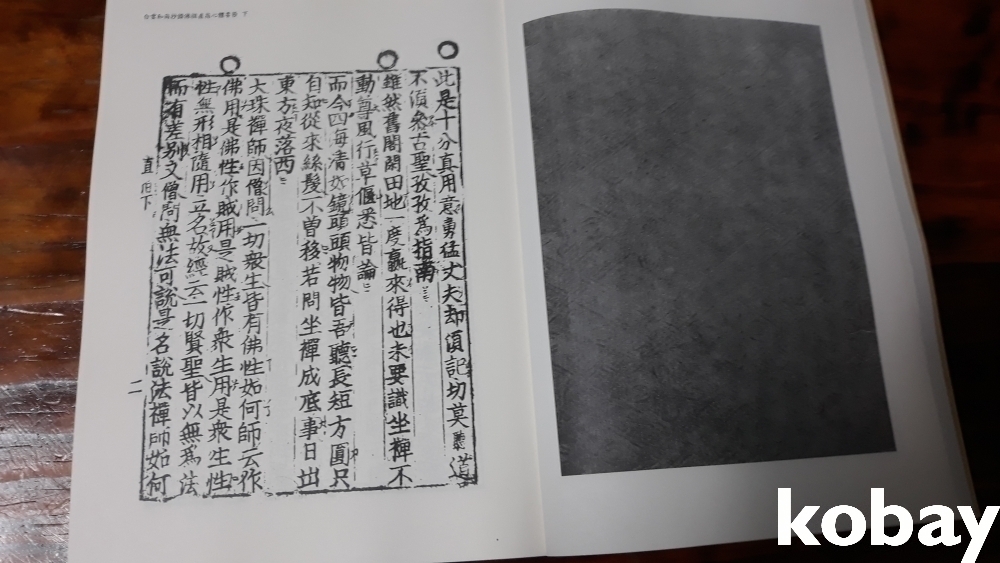 白雲和尚抄錄佛祖直指心體要節 下
此是十分真用意勇猛丈夫却須記切莫聽道
不須參古聖孜孜爲指南
雖然舊閣閑田地一度贏來得也未要識坐禪不
動尊風行草偃悉皆論
而今四海清如鏡頭頭物物皆吾聽長短方圓只
自知從來絲髮不曾移若問坐禪成底事日出
東方夜落西
大珠禪師因僧問一切衆生皆有佛性如何師云作
佛用是佛性作賊用是賊性作衆生用是衆生性
性無形相隨用立名故經云一切賢聖皆以無爲法
而有差別又僧問無法可說是名說法禪師如何
直 下
二
kobay